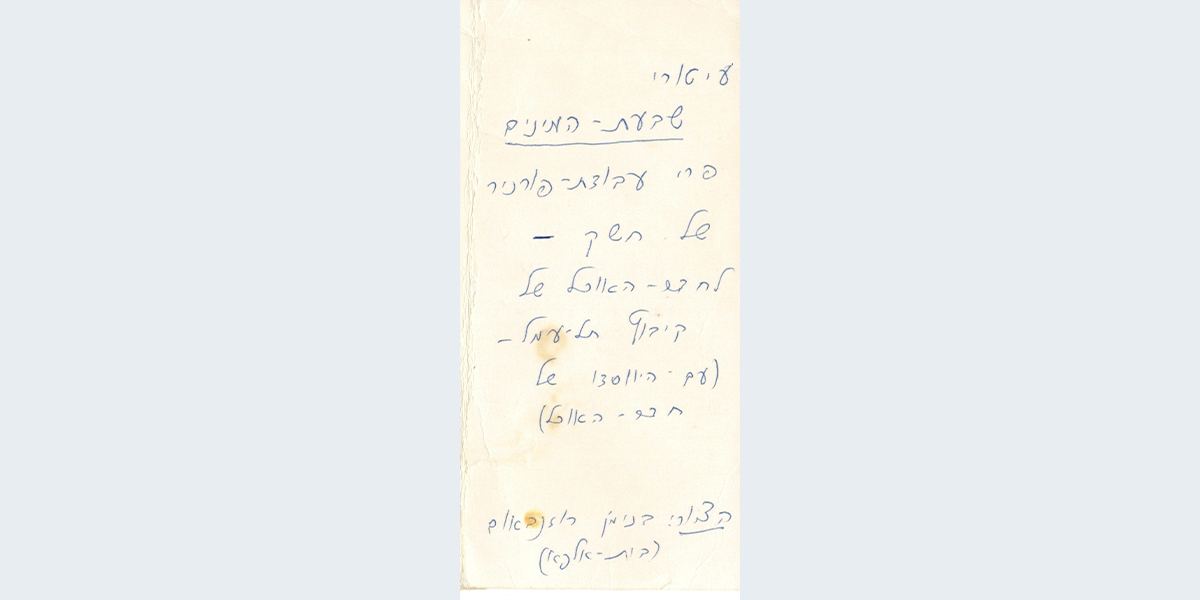 עיטורי
שבעת-המינים
פרי עבודת-פורניר
של חשק –
לחדר-האוכל של
קיבוץ תל-עמל –
(עם-היווסדו של
חדר-האוכל)
הציור: בנימין רוזנבאום
(בית-אלפא)